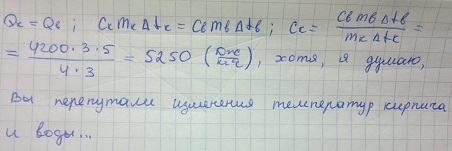 Qк = Qв ; Cк mк Δtк = Cв mв Δtв ; Cк = Cв mв Δtв / mк Δtк =
= 4200·3·5 / 4·3 = 5250 (Дж/кг), хотя, я думаю,
Вы перепутали изменения температур кирпича
и воды...